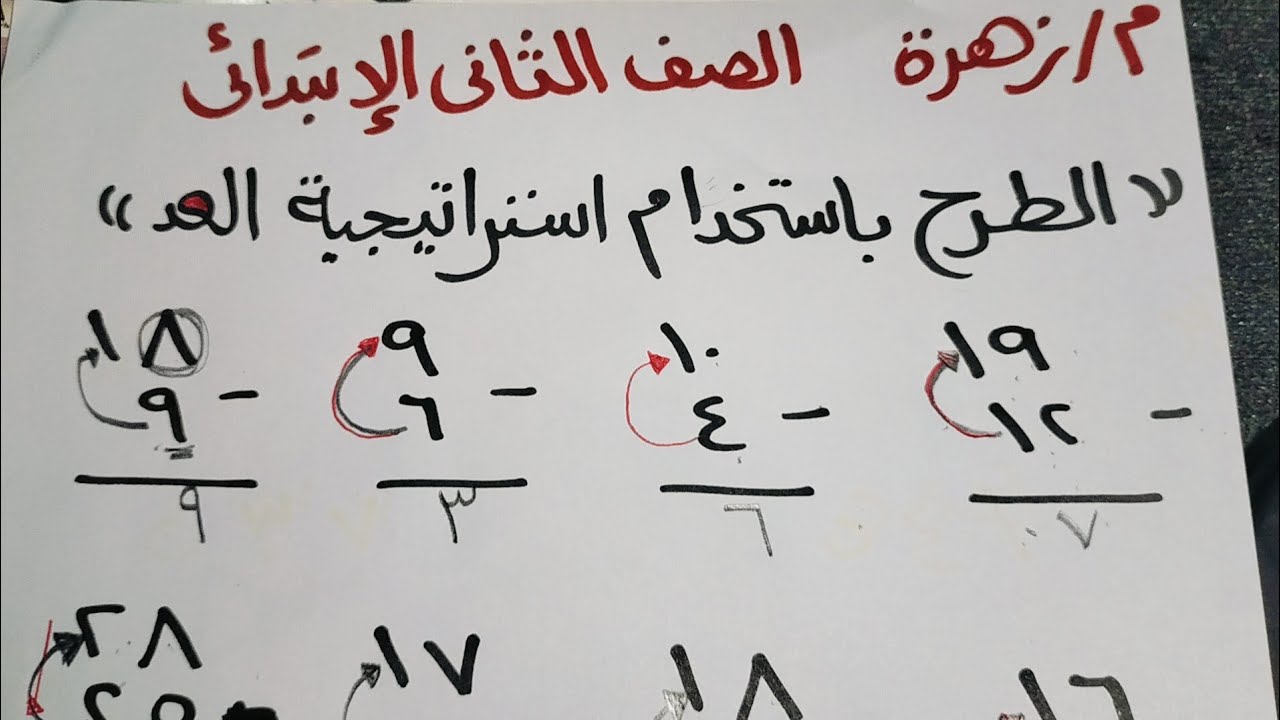 م/زهرة الصف الثانى الإبتدائى
«الطرح باستخدام استراتيجية العد»
١٩ ١٠ ٩ ١٨
- ١٢ - ٤ - ٦ - ٩
٠٧ ٦ ٣ ٩
١٦ ١٨ ١٧ ٢٨